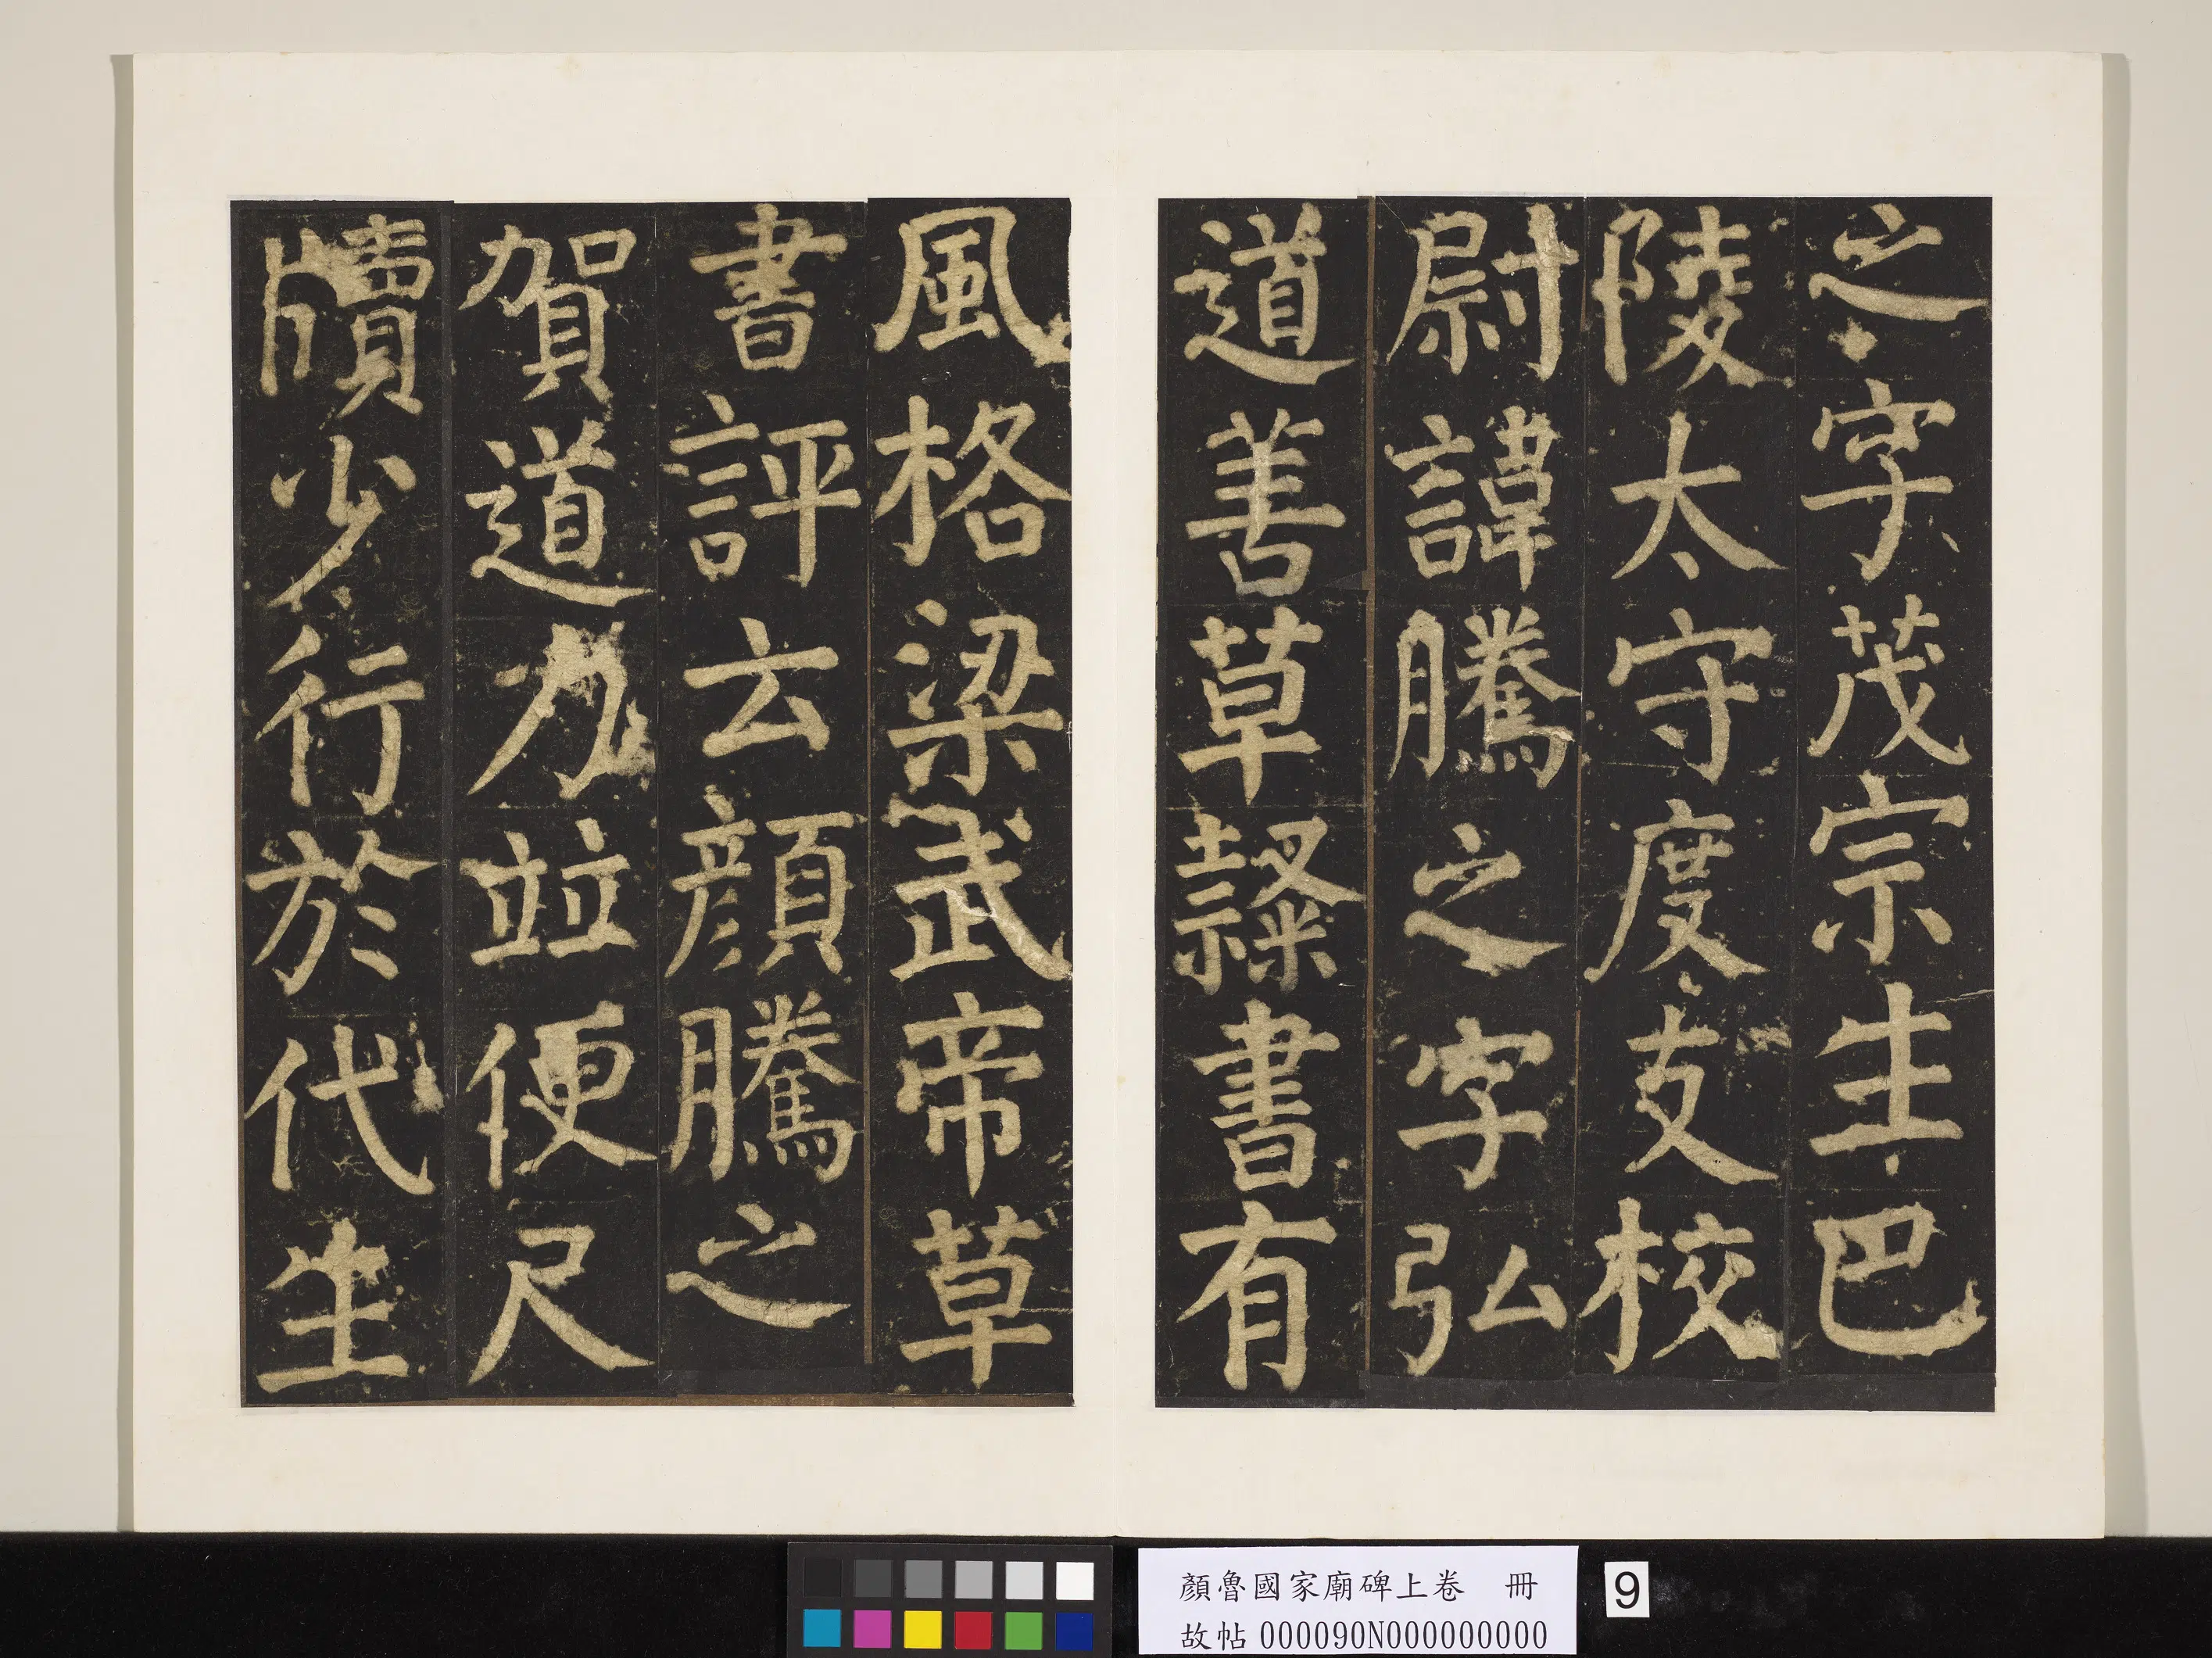 之字茂宗生巴
陵太守度支校
尉諱騰之字弘
道善草隸書有
風格梁武帝草
書評云顏騰之
賀道力並便尺
牘少行於代生
顏魯國家廟碑上卷 冊
故帖 000090N000000000
9